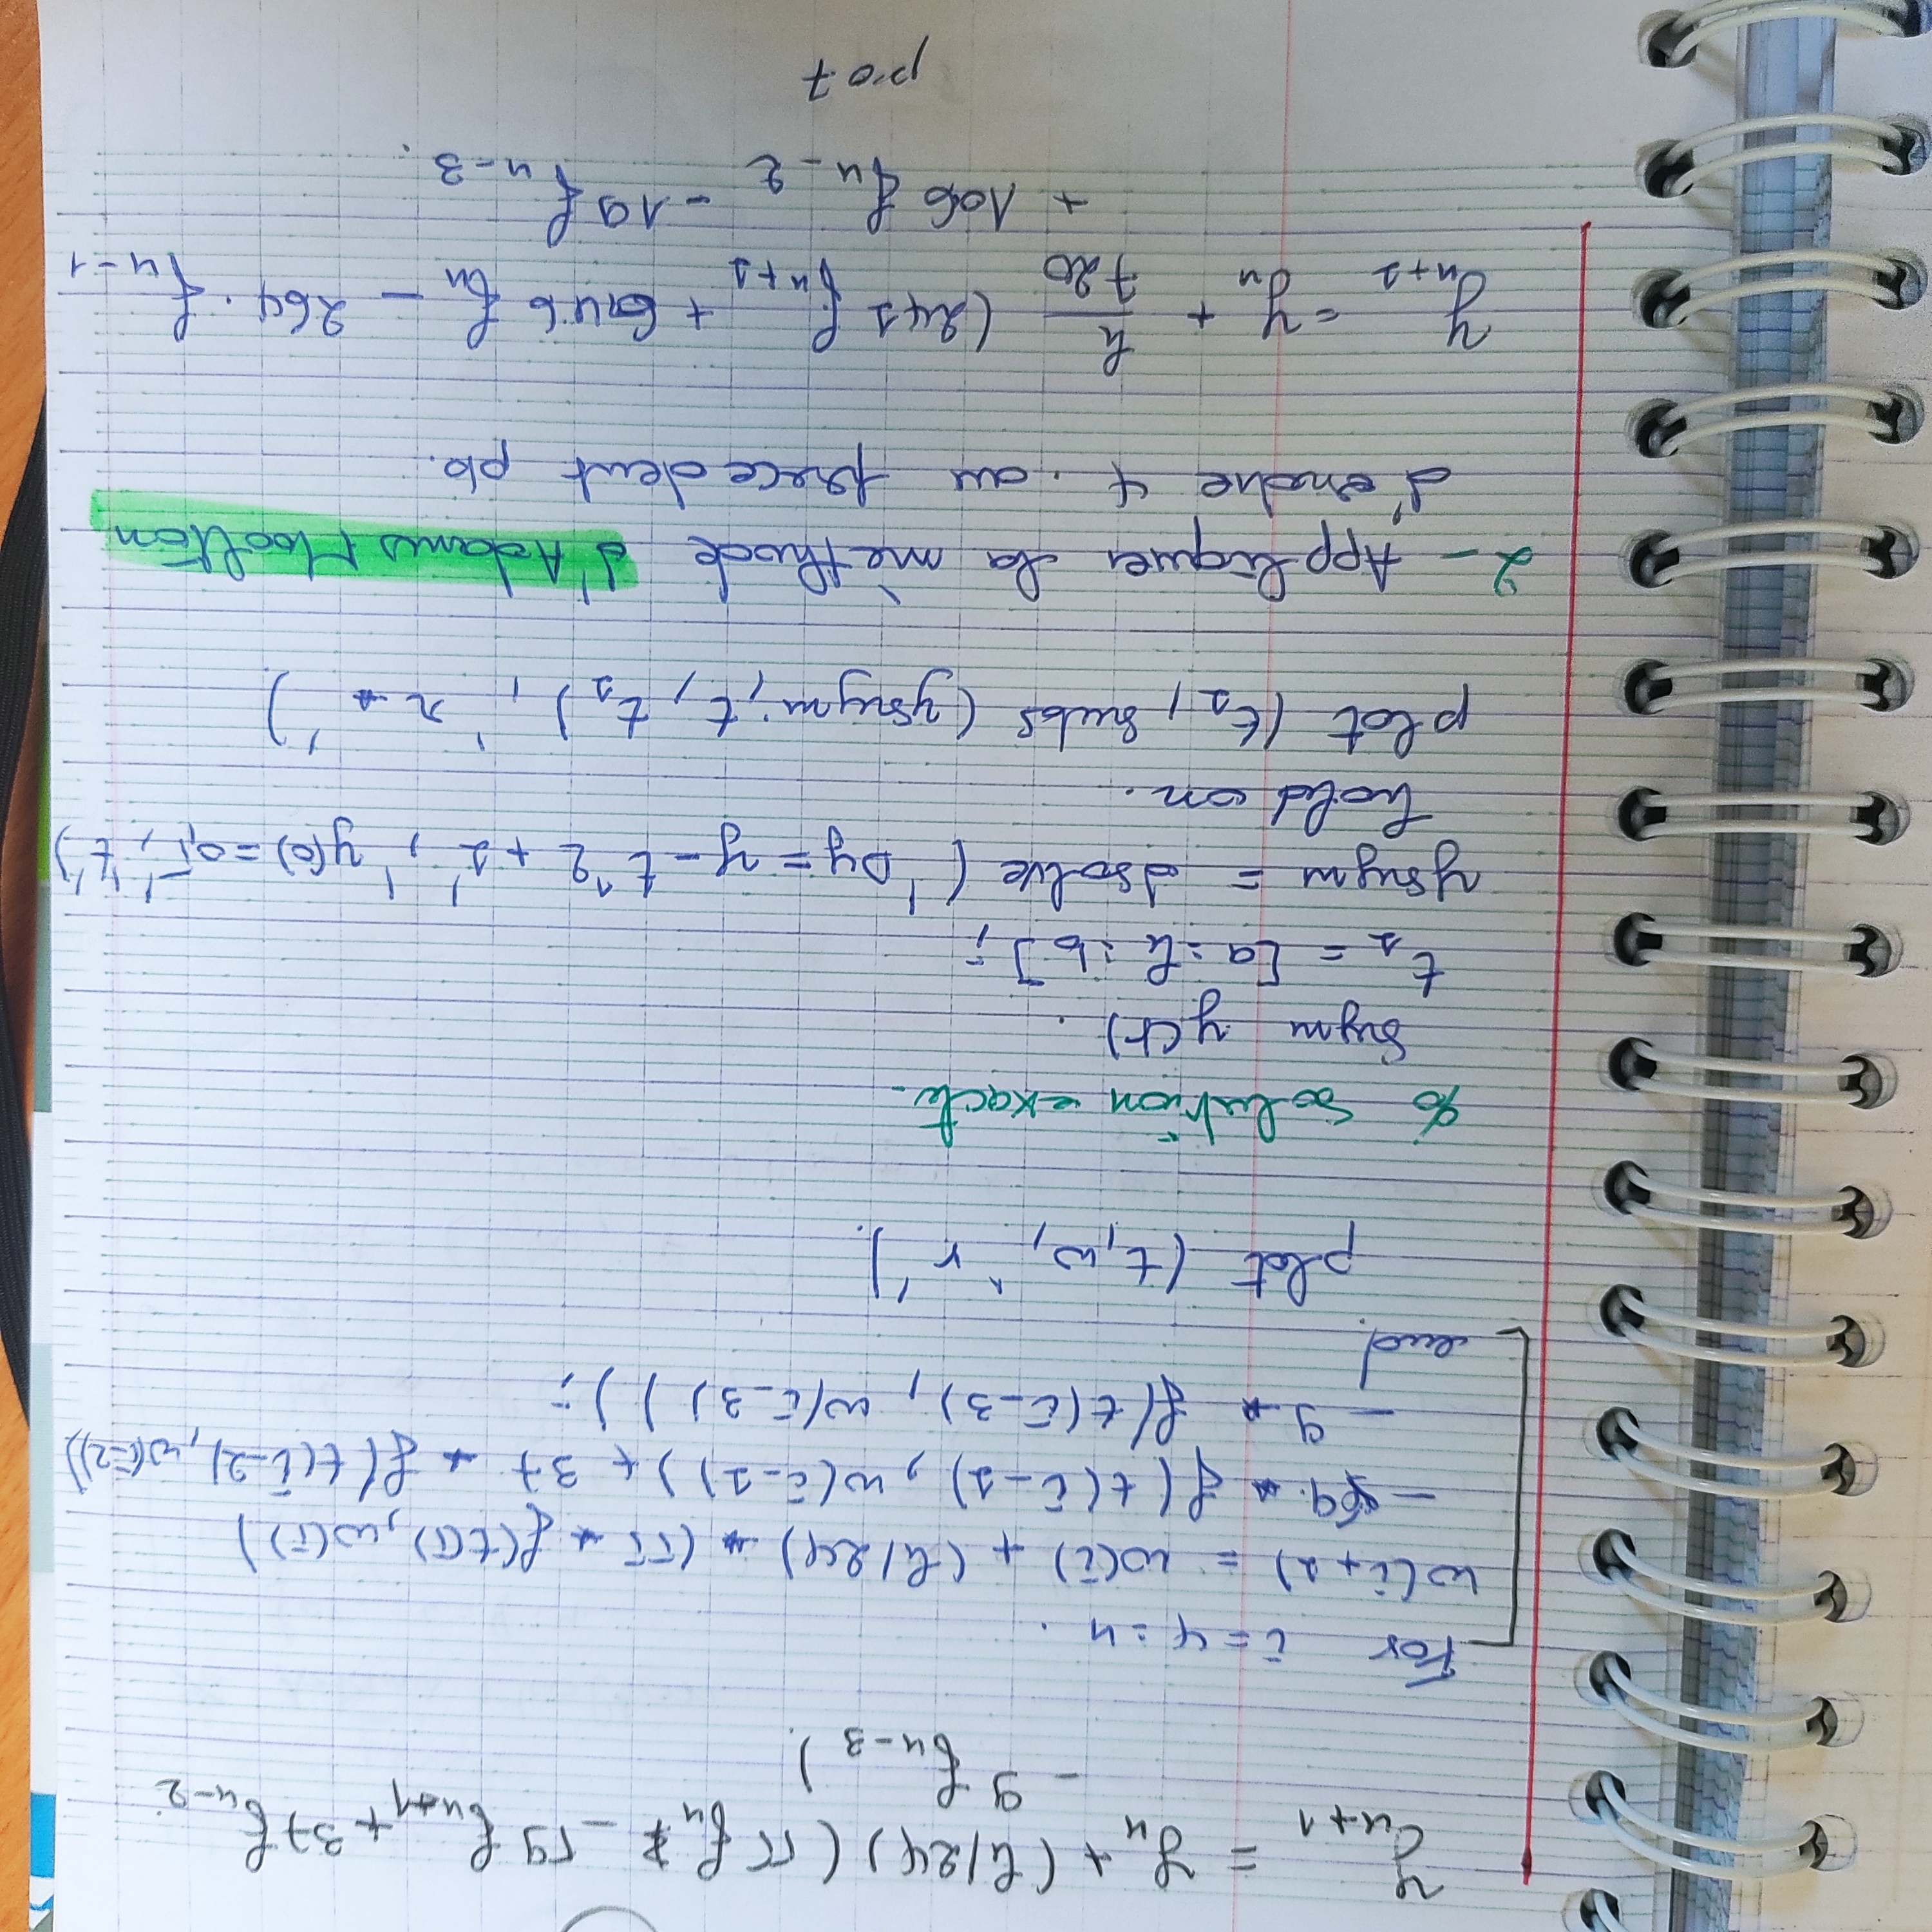 y_{n+1} = y_n + (h/24) (55 f_n - 59 f_{n+1} + 37 f_{n-2}
- 9 f_{n-3}).
For i = 4 : n .
w(i+1) = w(i) + (h/24) * (55 * f(t(i), w(i))
- 59 * f(t(i-1), w(i-1)) + 37 * f(t(i-2), w(i-2))
- 9 * f(t(i-3), w(i-3)));
end.
plot (t, w, 'r').
% solution exacte.
Sym y(t).
t_1 = [a : h : b];
ysym = dsolve ('Dy = y - t^2 + 1', 'y(0) = 0,5', 't')
hold on.
plot (t_1, subs (ysym, t, t_1), 'r*')
2- Appliquer la mèthode d'Adams Moolton
d'ordre 4. au precedent pb.
y_{n+1} = y_n + h/720 (241 f_{n+1} + 646 f_n - 264. f_{n-1}
+ 106 f_{n-2} - 19 f_{n-3}.
po7